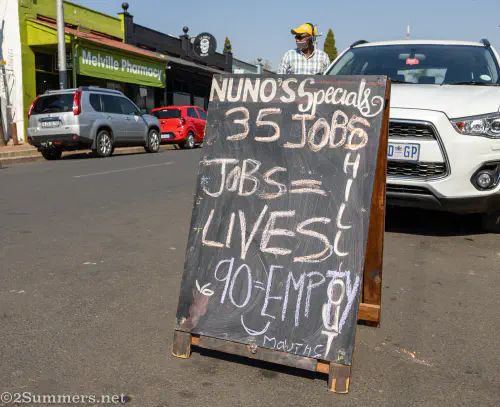 Melville Pharmacy
NUNO'S Specials
35 JOBS
JOBS =
LIVES!
90=EMPTY
MOUTHS
HILL OUT
D GP
©2Summers.net